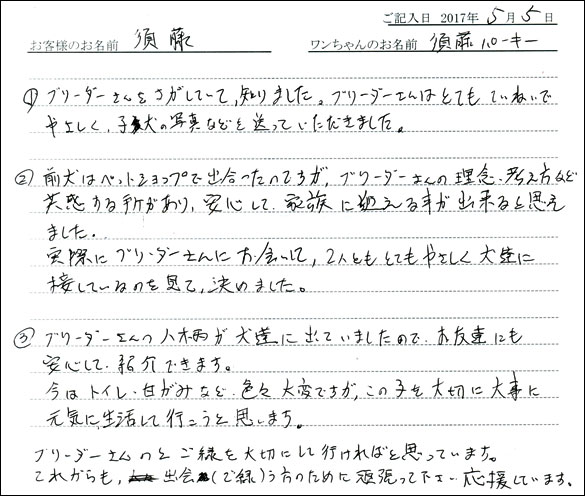 ご記入日 2017年 5月 5日
お客様のお名前 須藤 ワンちゃんのお名前 須藤パーキー
① ブリーダーさんをさがしていて、知りました。ブリーダーさんはとてもていねいで
やさしく、子犬の写真などを送っていただきました。
② 前犬はペットショップで出合ったのですが、ブリーダーさんの理念、考え方など
共感する所があり、安心して、家族に迎える事が出来ると思え
ました。
実際にブリーダーさんにお会いして、2人ともとてもやさしく犬達に
接しているのを見て、決めました。
③ ブリーダーさんの人柄が犬達に出ていましたので、お友達にも
安心して、紹介できます。
今はトイレ・甘がみなど、色々大変ですが、この子を大切に大事に
元気に生活して行こうと思います。
ブリーダーさんのとご縁を大切にして行ければと思っています。
これからも、出会(ご縁)う方のために頑張って下さい。応援しています。